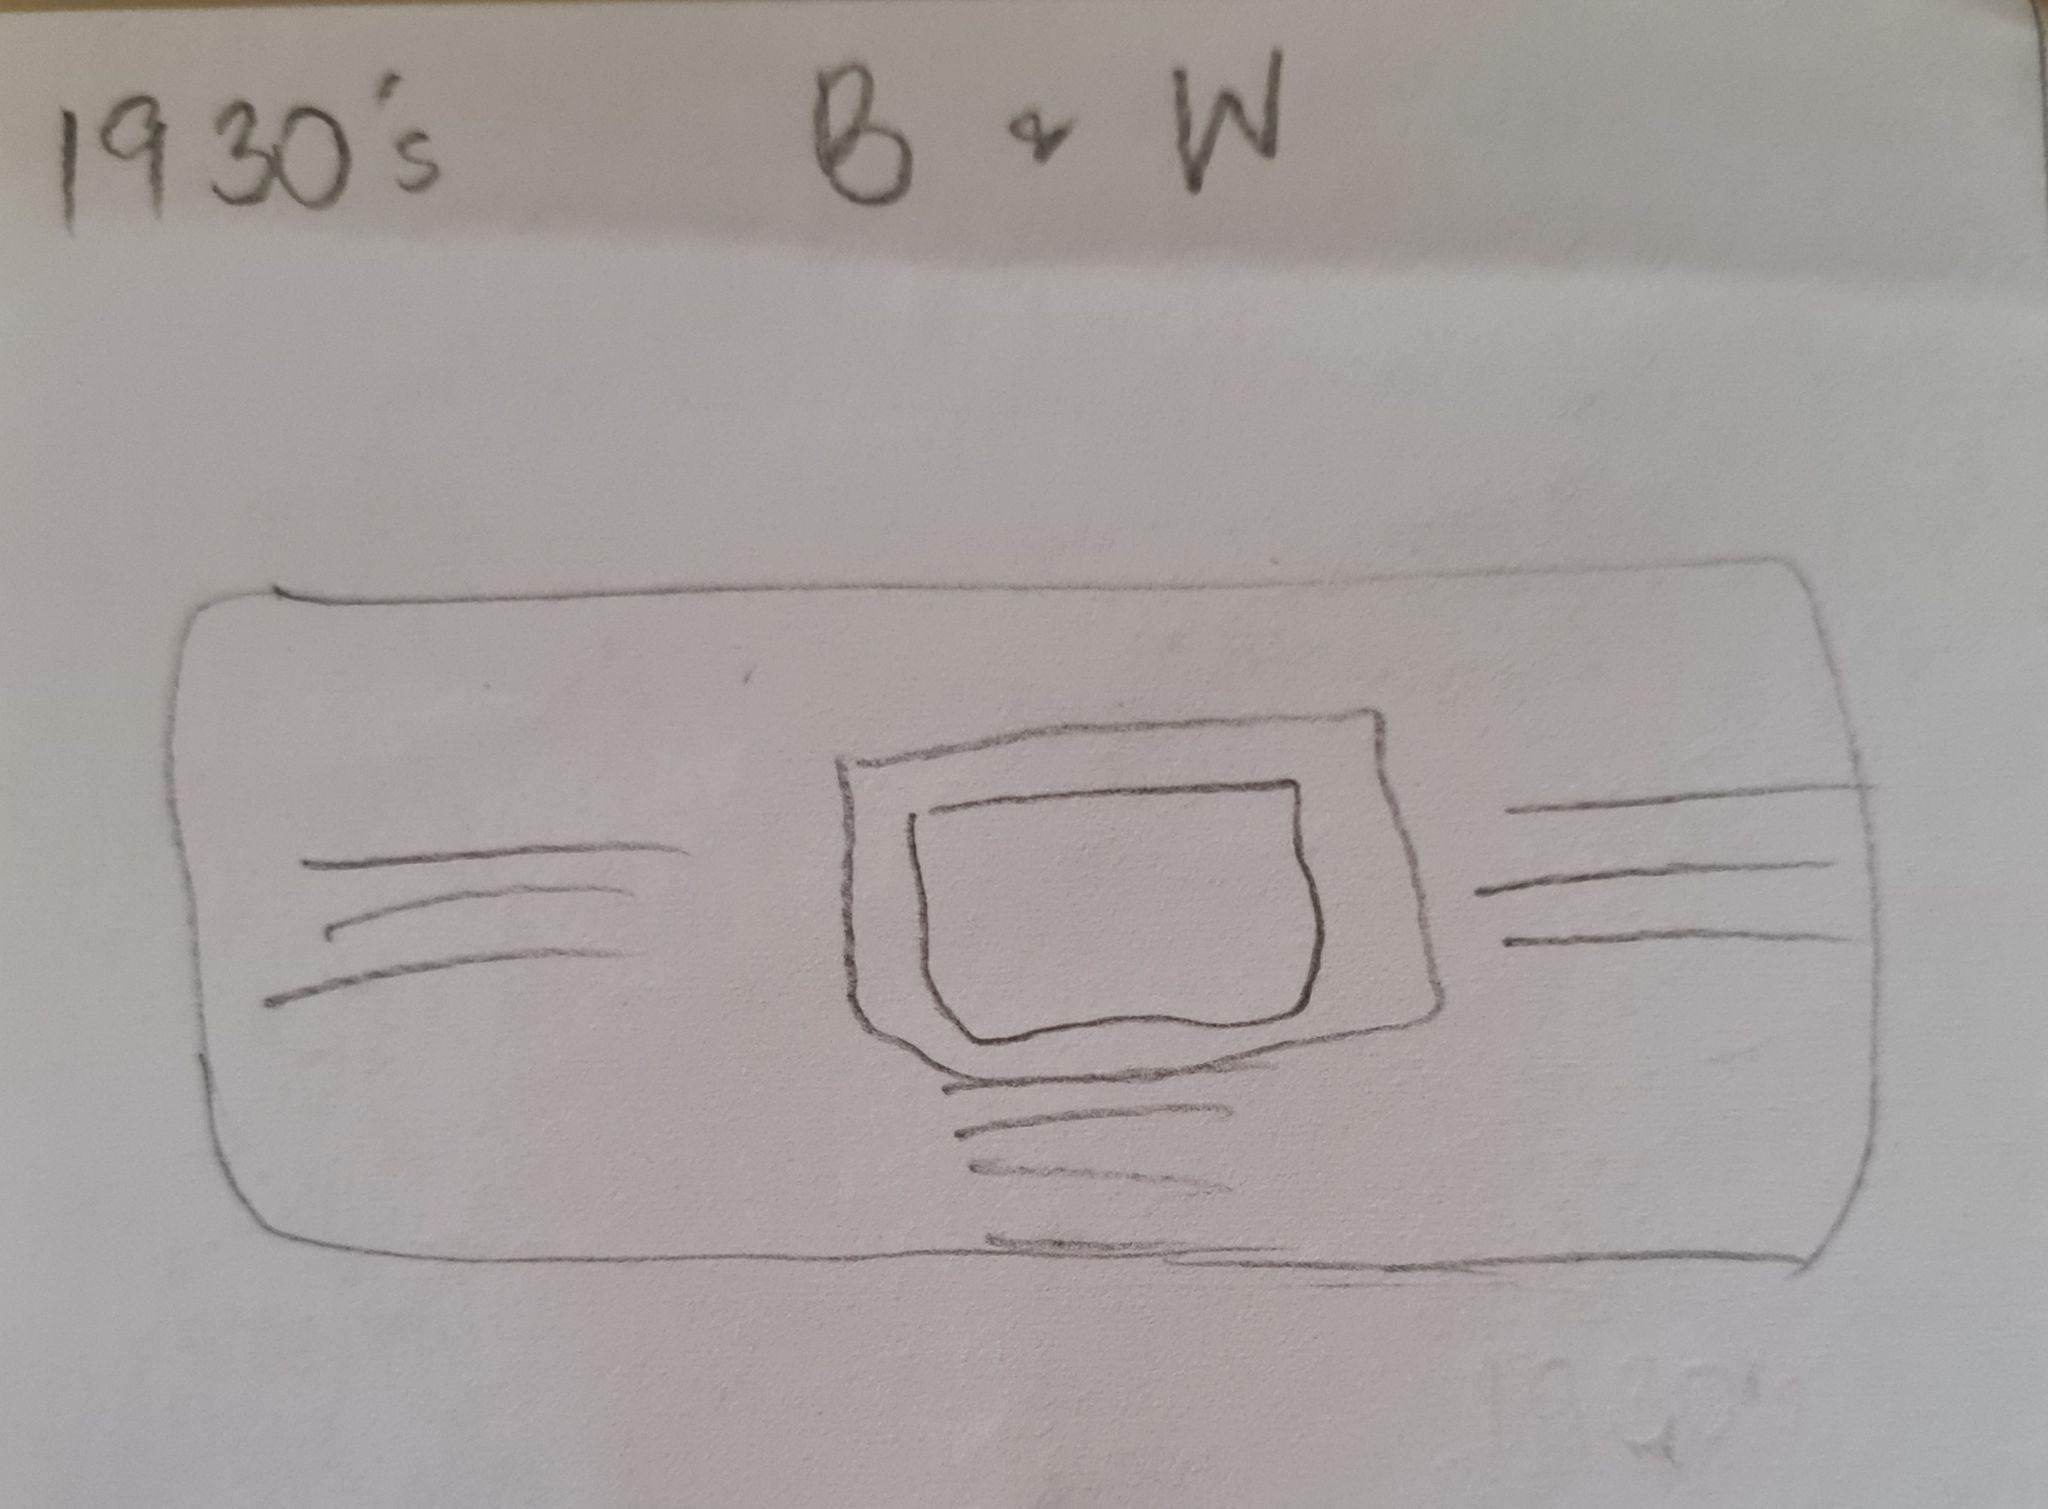 1930's B & W